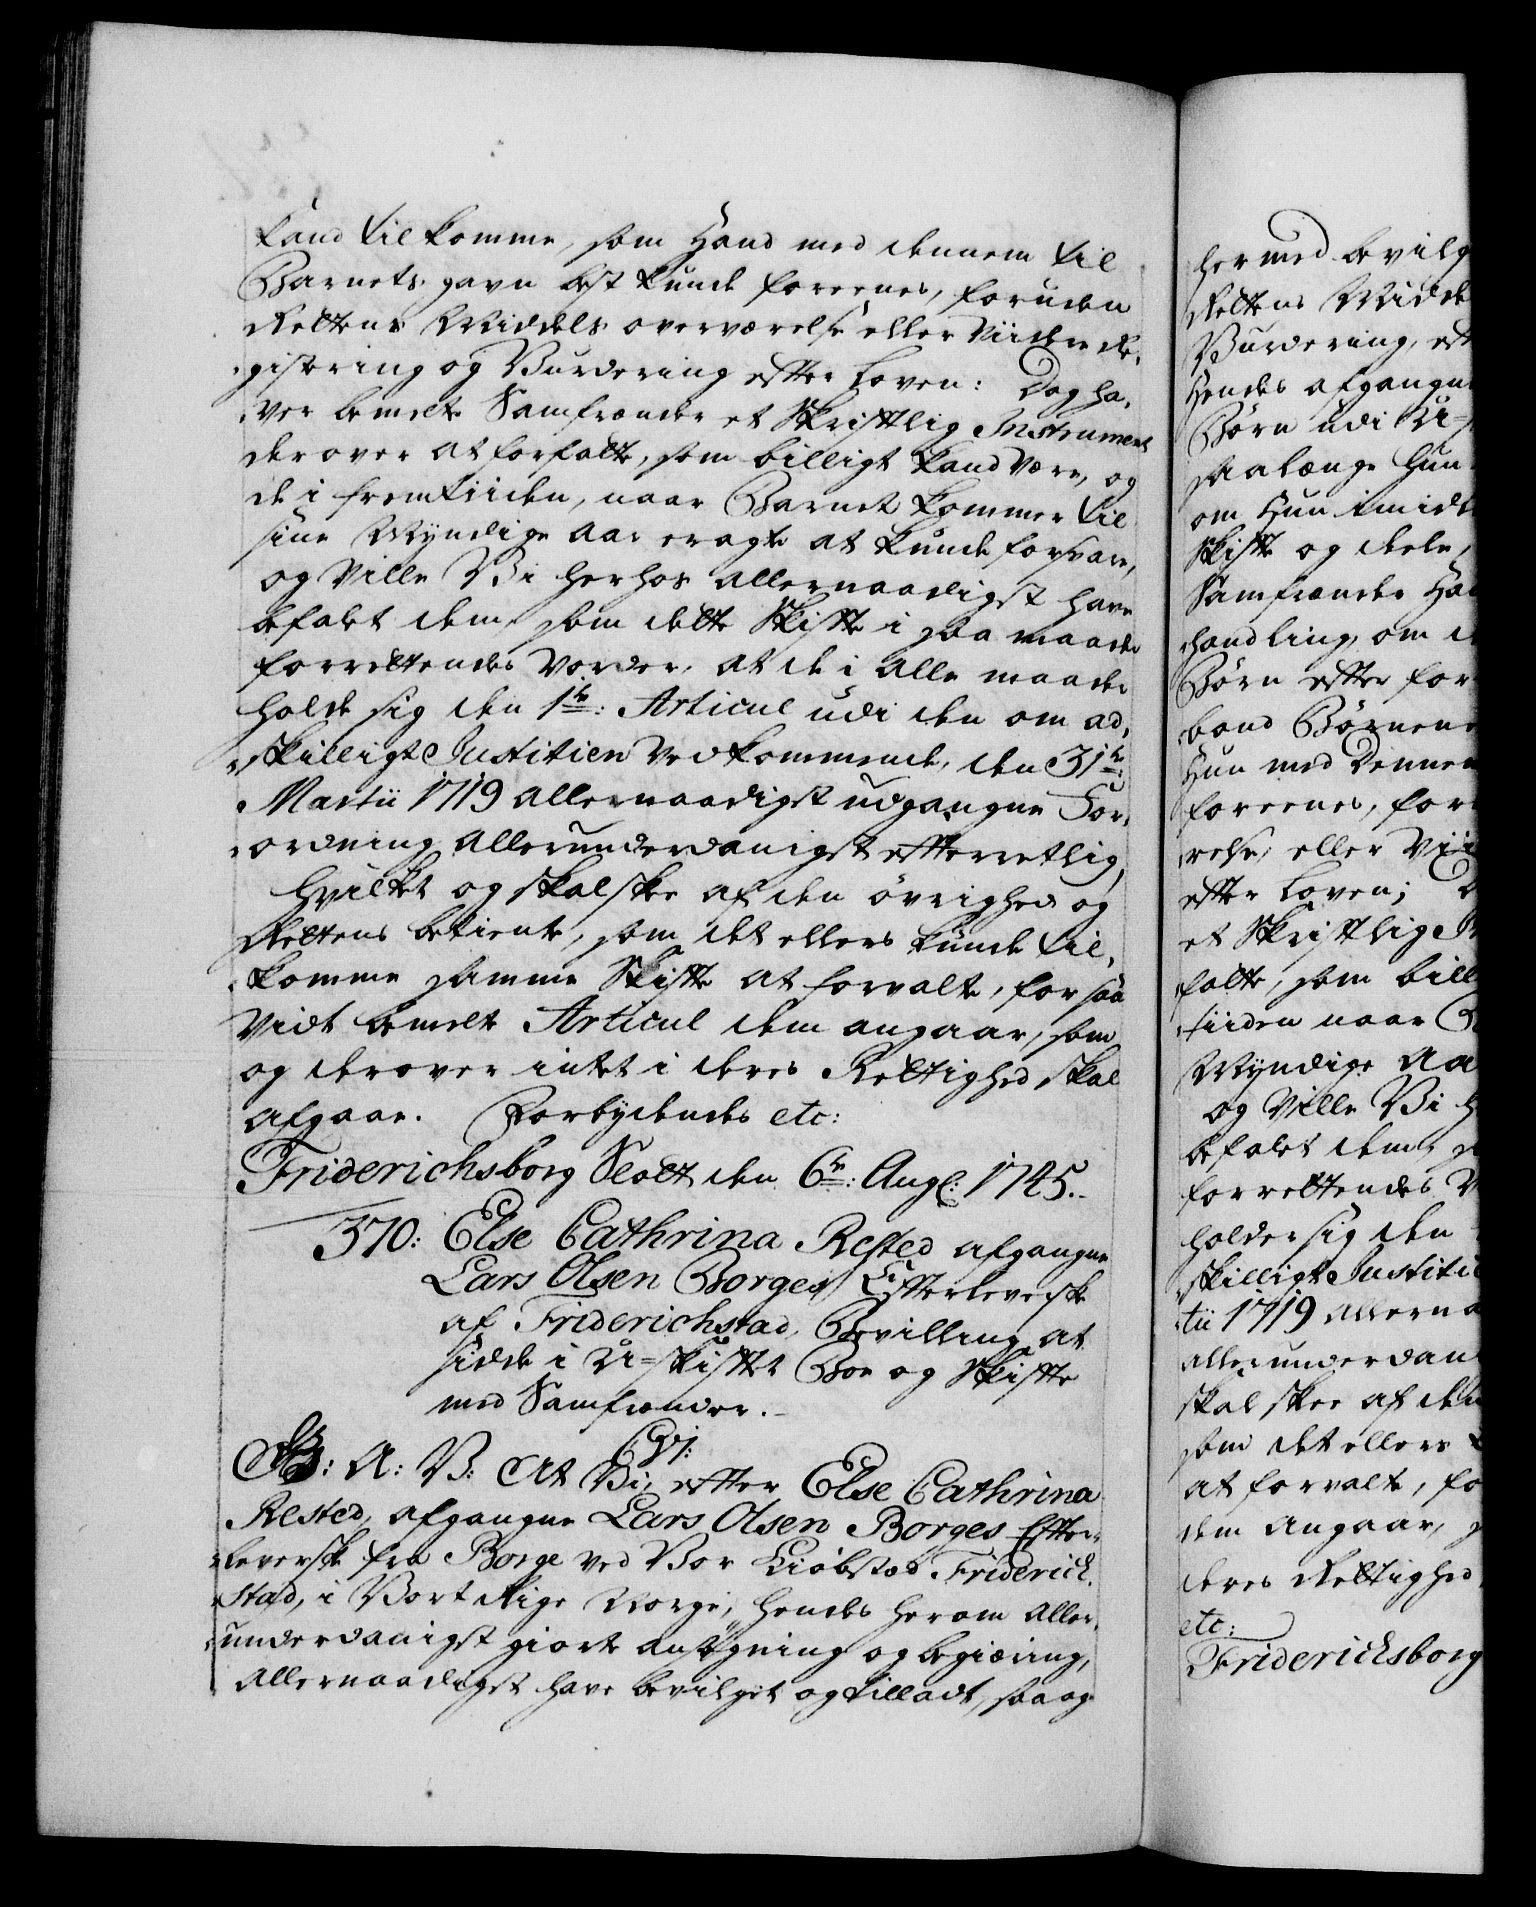 kand tilkomme, som hand med dennem til
Barnets gavn best kunde foreenes, foruden
Rettens Middels overværelse eller Viidere Re-
gistering og Vurdering efter Loven: Dog ha-
ver bemelte Samfrænder et Skrifftlig Instrument
derover at forfatte, som billigt kand være, og
de i fremtiiden, naar Barnet kommer til
sine Myndige Aar eragte at kunde forsvare,
og Ville Vi herhos allernaadigst have
befalet dem, som dette Skiffte i saa maade
forrettendes vorder, at de i alle maade
holde sig den 1te: Articul udi den om ad-
skilligt Justitien vedkommende, den 31te:
Martii 1719 allernaadigst udgangne For-
ordning allerunderdanigst efterretlig,
hvilket og skal skee af den övrighed og
Rettens betiente, som det ellers kunde til-
komme samme Skiffte at forvalte, for saa
vidt bemelte Articul dem angaar, som
og derover intet i deres Rettighed skal
afgaae. Forbydendes etc:
Friderichsborg Slott den 6te: Aug: 1745.
370: Else Cathrina Rested afgangne
Lars Olsen Borges Effterleverske
af Friderichstad, Bevilling at
sidde i U-skifftet Boe og Skiffte
med Samfrænder.
C6:
A: V: At Vi, efter Else Cathrina
Rested, afgangne Lars Olsen Borges Effter-
leverske fra Borge ved Vor Kiøbsted Friderich-
stad, i Vort Rige Norge, hendes herom aller-
underdanigst giorte ansøgning og begiæring,
allernaadigst have bevilget og tilladt, saa og
hermed bevilg
Rettens Midde
Vurdering, eft
hendes afgangne
Børn udi U-s
saalænge hun
om hun imidl
Skifte og dele,
Samfrænder ha
handling, om d
Børn effter for
band Børnene
hun med Dennem
foreenes, for
relse, eller Vii
efter Loven; D
et Skrifftlig In
fatte, som bill
tiiden naar B
Myndige Aa
og Ville Vi h
befalet dem, s
forrettendes V
holder sig den
skilligt Justiti
tii 1719 allerna
allerunderdan
skal skee af den
som det ellers k
at forvalte, fo
dem angaar, s
deres Rettighed
etc:
Friderichsborg